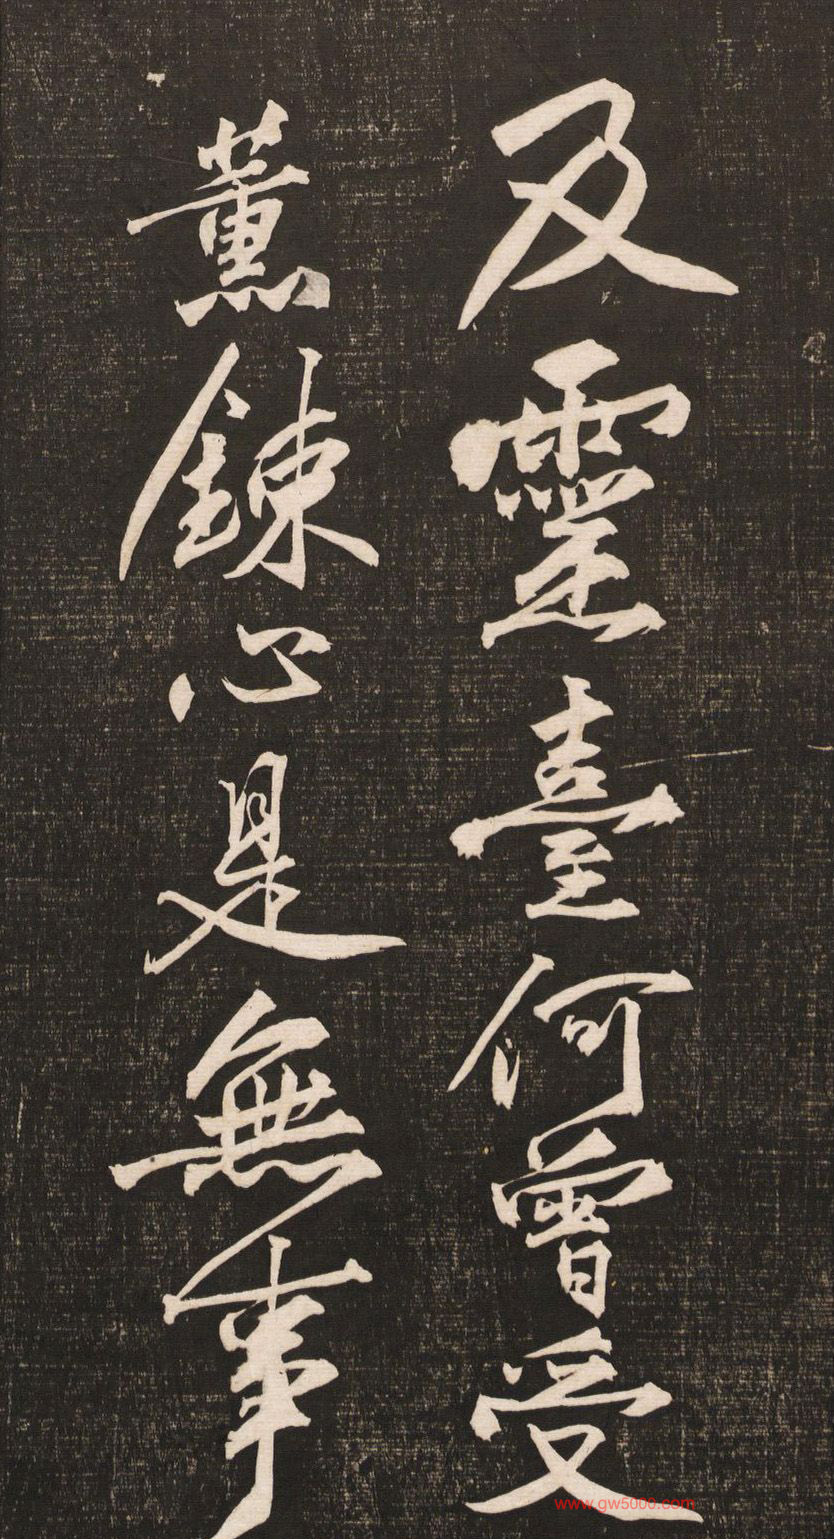 及靈臺何曾受
薰鍊心是無事
www.gw5000.com